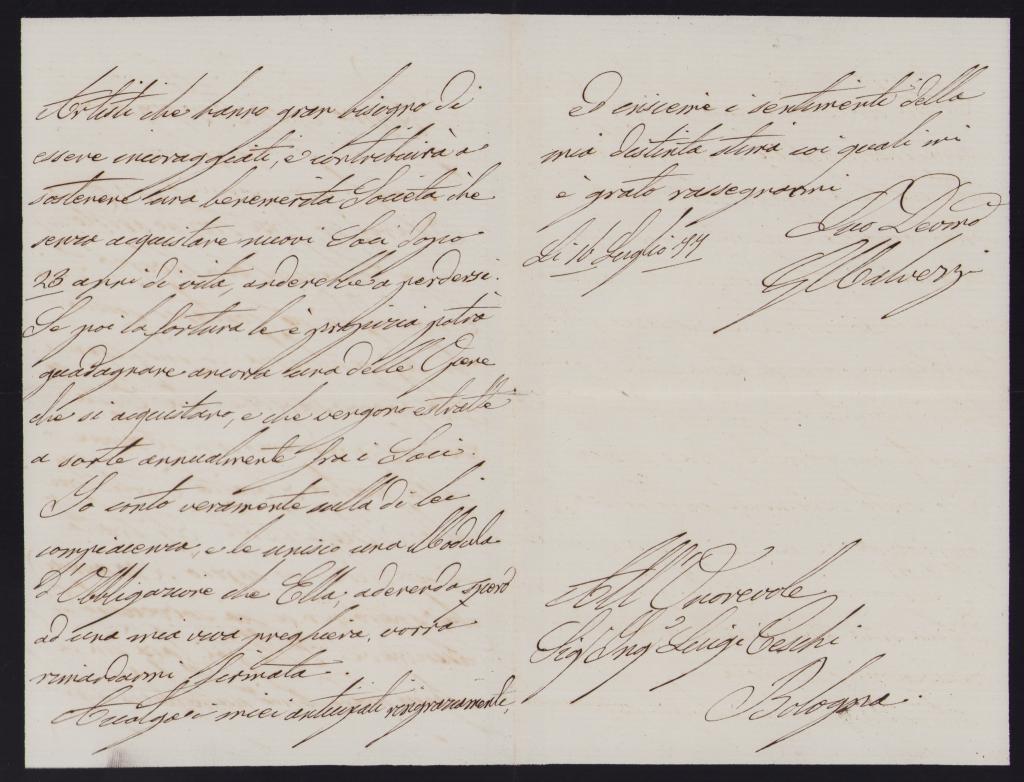 Artisti che hanno gran bisogno di
essere incoraggiati, e contribuirà a
sostenere una benemerita Società che
senza acquistare nuovi Soci dopo
23 anni di vita, anderebbe a perdersi.
Se poi la fortuna le è propizia potrà
guadagnare ancora una delle Opere
che si acquistano, e che vengono estratte
a sorte annualmente fra i Soci.
Io conto veramente sulla di lei
compiacenza, e le unisco una Modula
d'Obbligazione che Ella, aderendo spero
ad una mia viva preghiera, vorrà
rimandarmi firmata.
Accolga i miei anticipati ringraziamenti,
ed insieme i sentimenti della
mia distinta stima coi quali mi
è grato rassegnarmi
Suo Devmo
Li 16 Luglio 77
Malvezzi
All'Onorevole
Sigr Ingr Luigi Ceschi
Bologna.